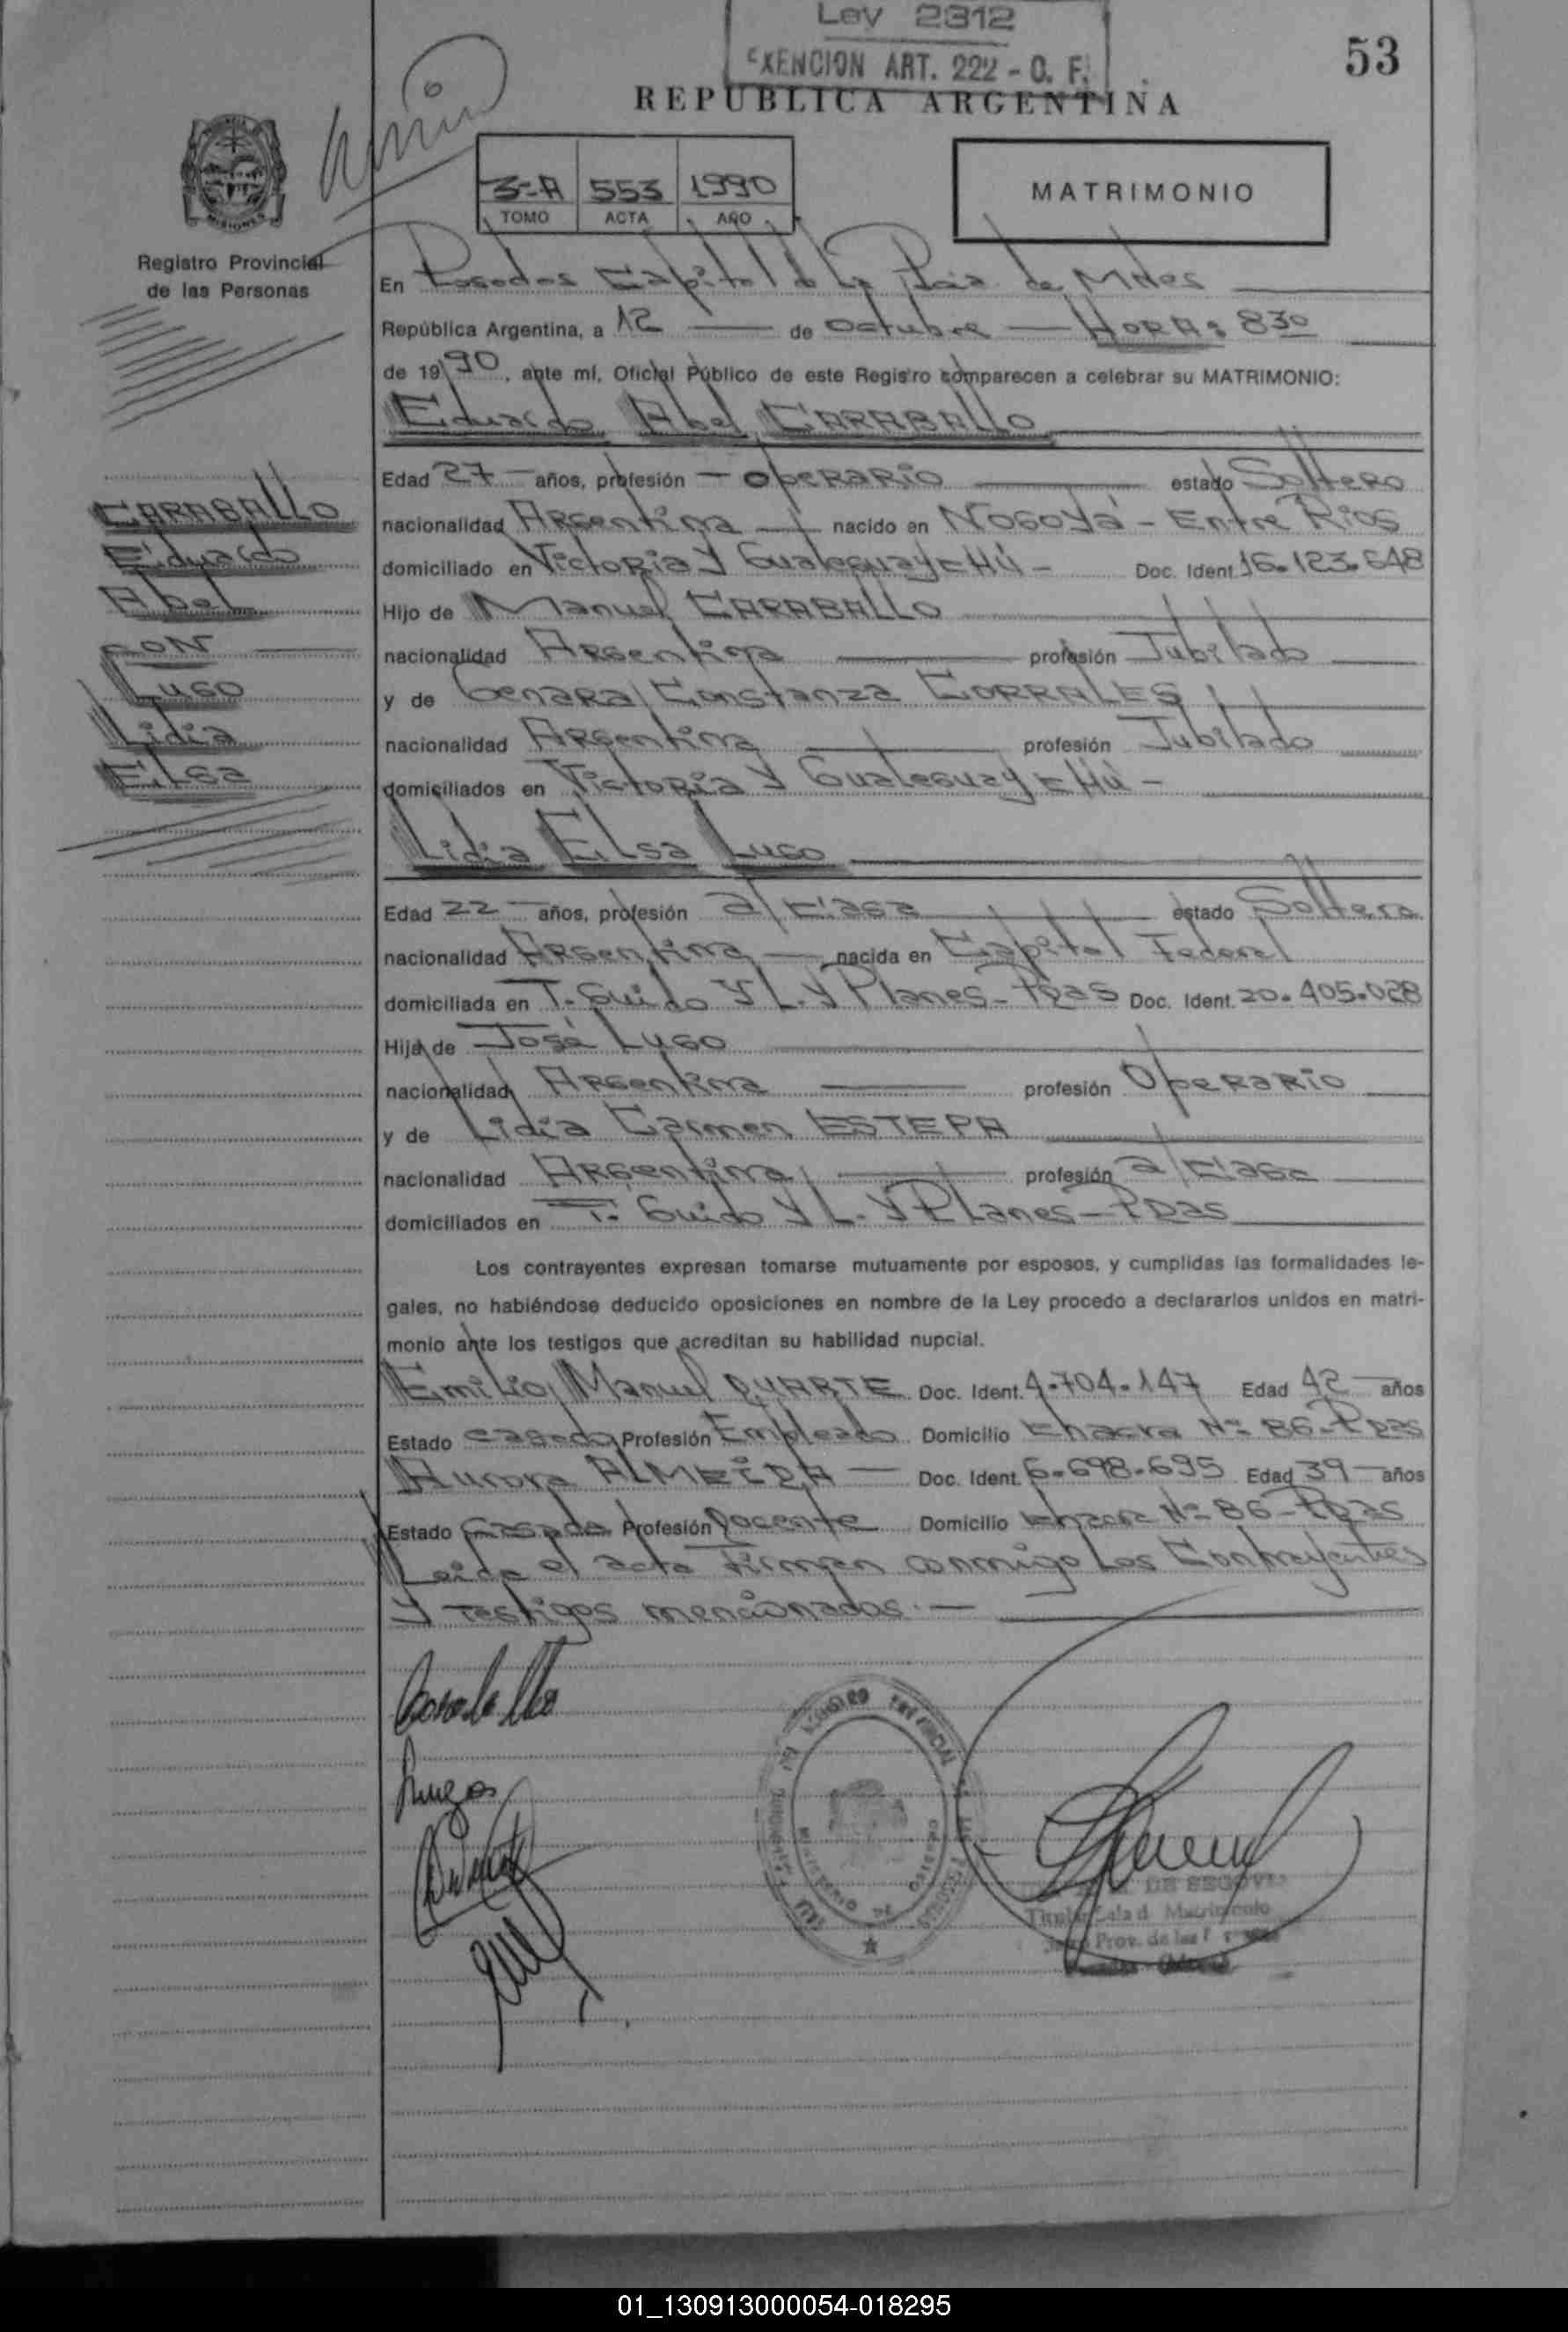 Ley 2312
EXENCION ART. 222 - O. F.
53
REPUBLICA ARGENTINA
3-A 553 1990
TOMO ACTA AÑO
MATRIMONIO
Registro Provincial
de las Personas
En Posadas Capital de la Pcia. de Mnes
República Argentina, a 12 de Octubre HORA: 830
de 1990, ante mí, Oficial Público de este Registro comparecen a celebrar su MATRIMONIO:
Eduardo Abel CARABALLO
Edad 27 años, profesión operario estado Soltero
nacionalidad Argentina nacido en Nogoyá - Entre Rios
domiciliado en Victoria y Gualeguaychú - Doc. Ident. 16.123.648
Hijo de Manuel CARABALLO
nacionalidad Argentina profesión Jubilado
y de Genara Constanza CORRALES
nacionalidad Argentina profesión Jubilado
domiciliados en Victoria y Gualeguaychú -
CARABALLO
Eduardo
Abel
CON
Lugo
Lidia
Elsa
Lidia Elsa Lugo
Edad 22 años, profesión a/casa estado Soltera
nacionalidad Argentina nacida en Capital Federal
domiciliada en T. Guido y L. y Planes - Pdas Doc. Ident. 20.405.028
Hija de José Lugo
nacionalidad Argentina profesión Operario
y de Lidia Carmen ESTEPA
nacionalidad Argentina profesión a/casa
domiciliados en T. Guido y L. y Planes - Pdas
Los contrayentes expresan tomarse mutuamente por esposos, y cumplidas las formalidades le-
gales, no habiéndose deducido oposiciones en nombre de la Ley procedo a declararlos unidos en matri-
monio ante los testigos que acreditan su habilidad nupcial.
Emilio Manuel DUARTE Doc. Ident. 4.704.147 Edad 42 años
Estado casado Profesión Empleado Domicilio Chacra Nº 86 - Pdas
Aurora ALMEIDA Doc. Ident. 6.698.695 Edad 39 años
Estado Casada Profesión Docente Domicilio Chacra Nº 86 - Pdas
Leida el acta firman conmigo los Contrayentes
y testigos mencionados. -
Caraballo
Lugo
DE SEGOVIA
Titular Sala d. Matrimonio
Prov. de las
01_130913000054-018295